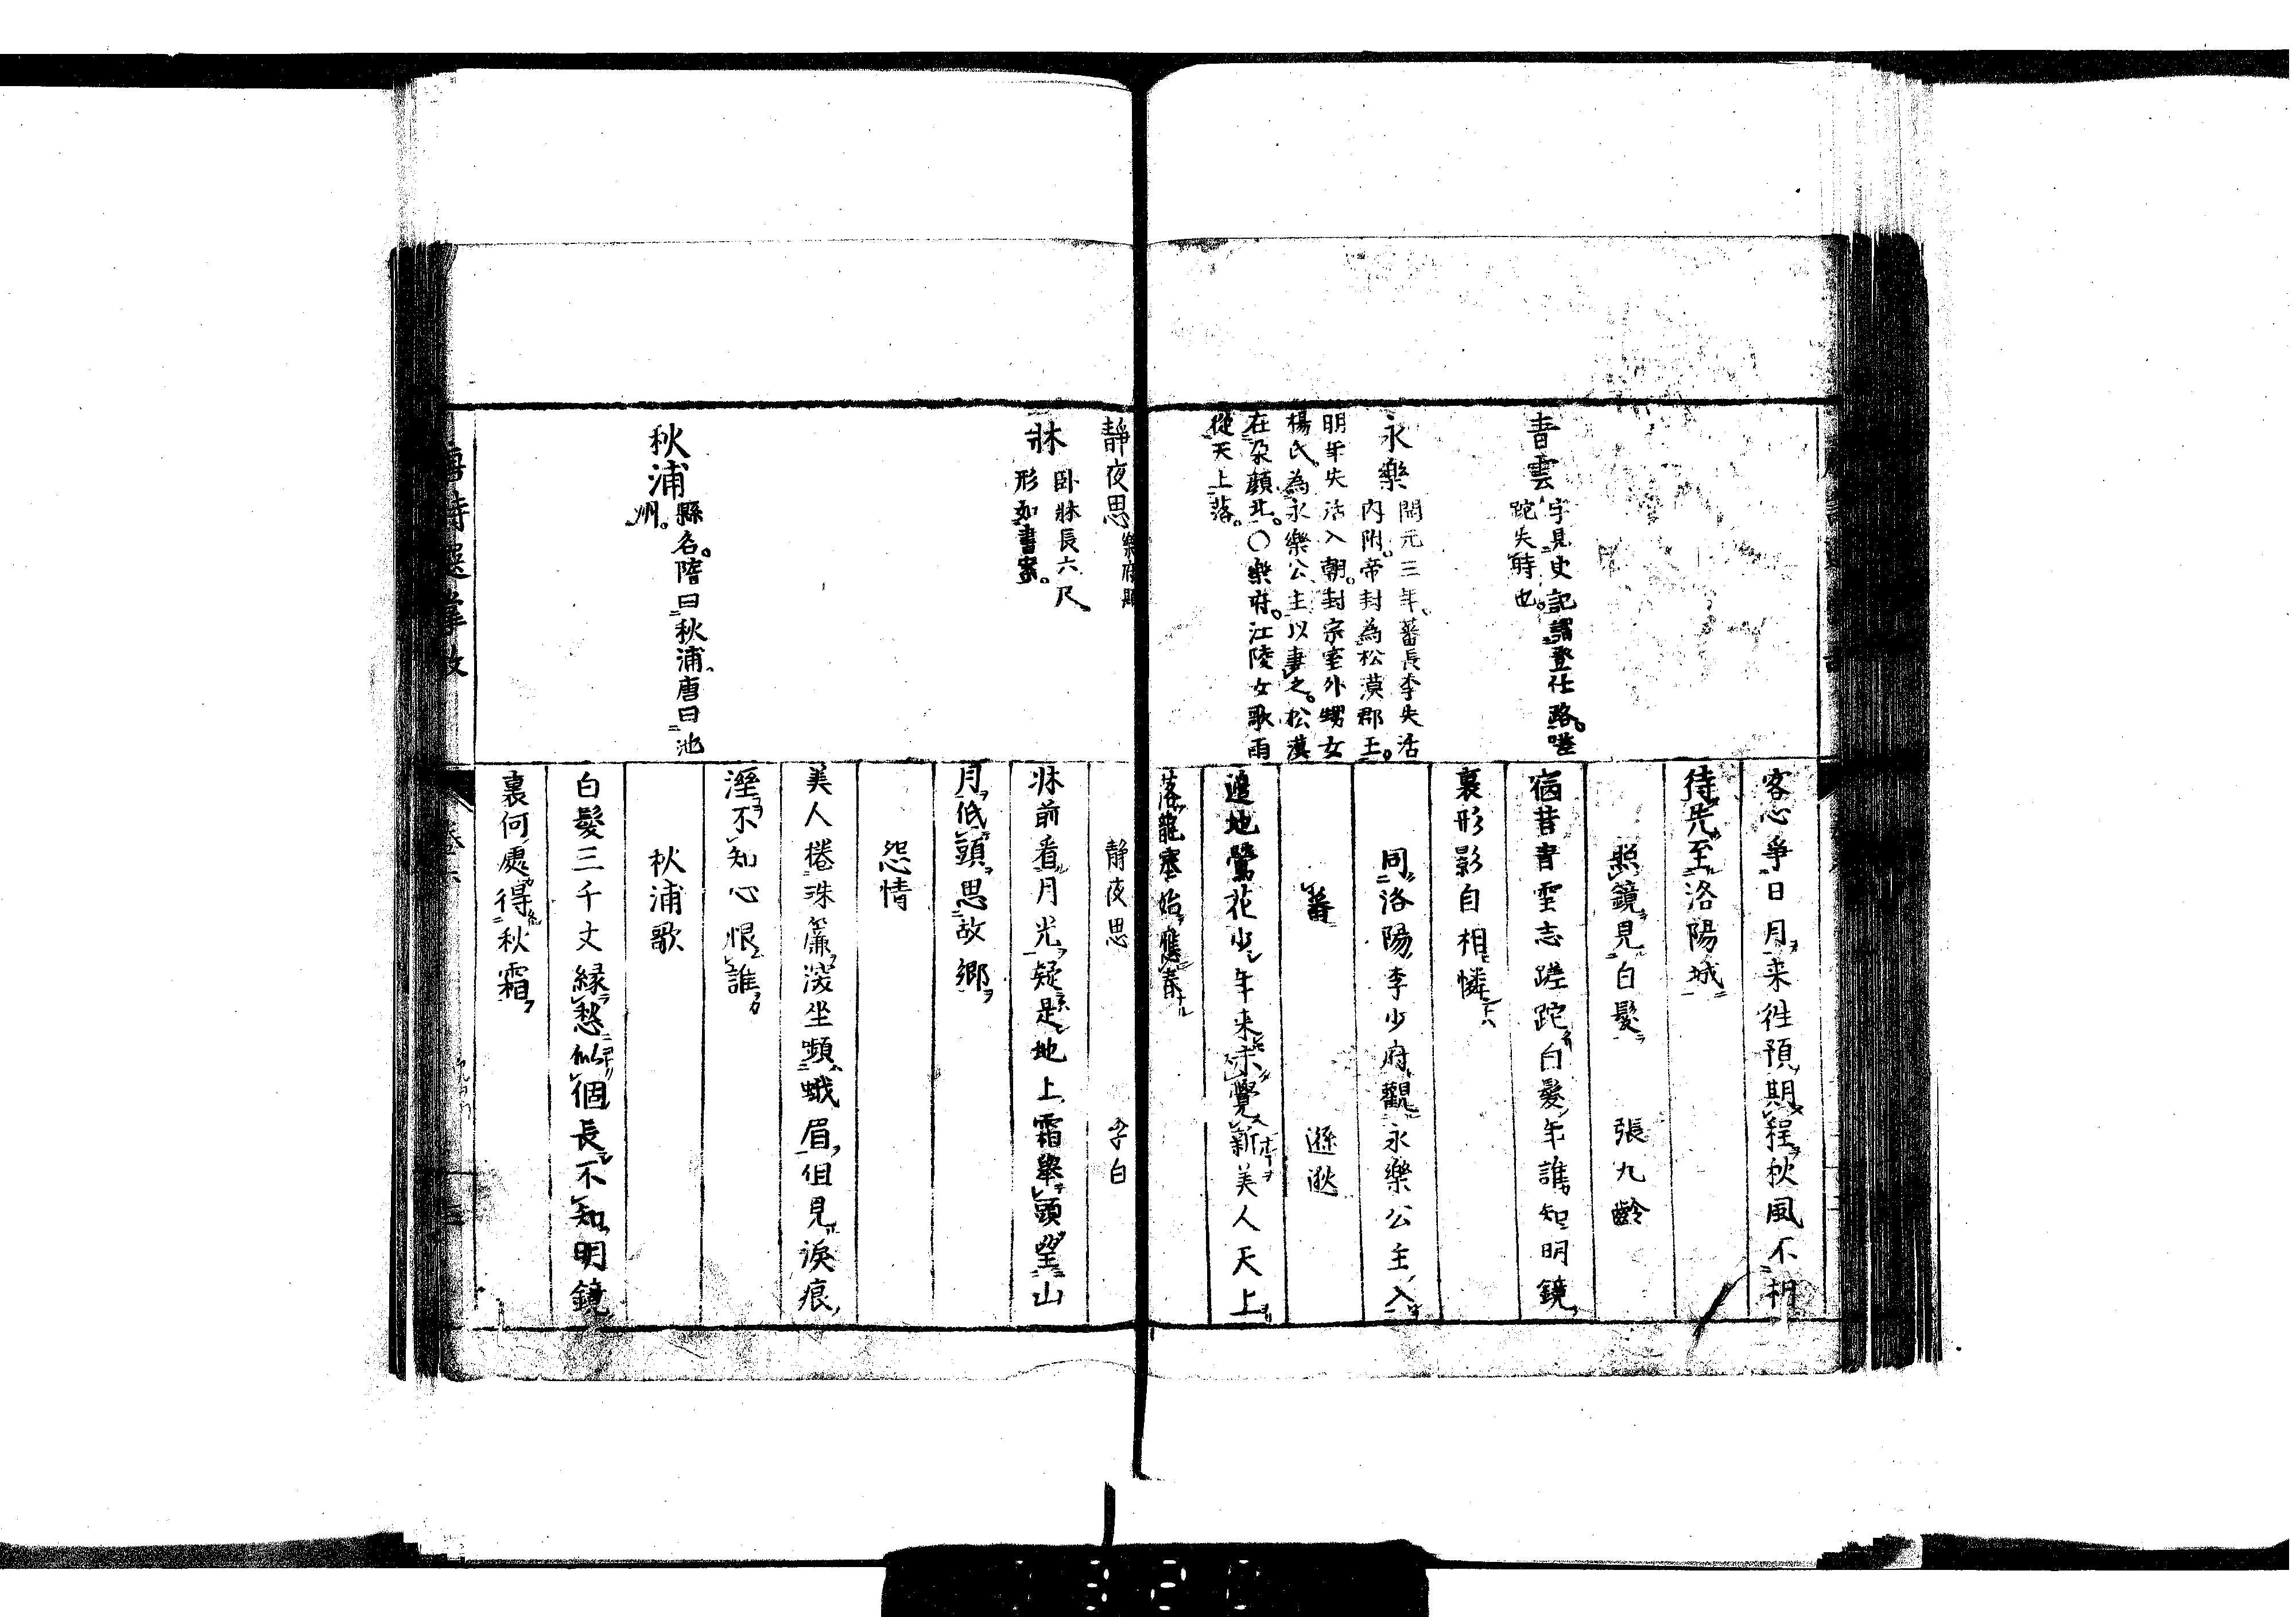 青雲
字見史記謂登仕路。嗟
跎失時也。
永樂
開元三年。蕃長李失活
内附。帝封為松漠郡王。
明年失活入朝。封宗室外甥女
楊氏。為永樂公主以妻之。松漠
在朶顔北。〇樂府。江陵女歌雨
從天上落。
客心爭日月来徃預期程秋風不相
待先至洛陽城
照鏡見白髮　張九齡
宿昔青雲志蹉跎白髮年誰知明鏡
裏形影自相憐
同洛陽李少府觀永樂公主入
蕃　遜逖
邊地鶯花少年来未覺新美人天上
落龍塞始應春
靜夜思
樂府
牀
卧牀長六尺
形如書案。
秋浦
縣名。隋曰秋浦。唐曰池
州。
靜夜思　李白
牀前看月光疑是地上霜舉頭望山
月低頭思故郷
怨情
美人捲珠簾深坐嚬蛾眉但見淚痕
溼不知心恨誰
秋浦歌
白髮三千丈縁愁似個長不知明鏡
裏何處得秋霜
唐詩選掌故